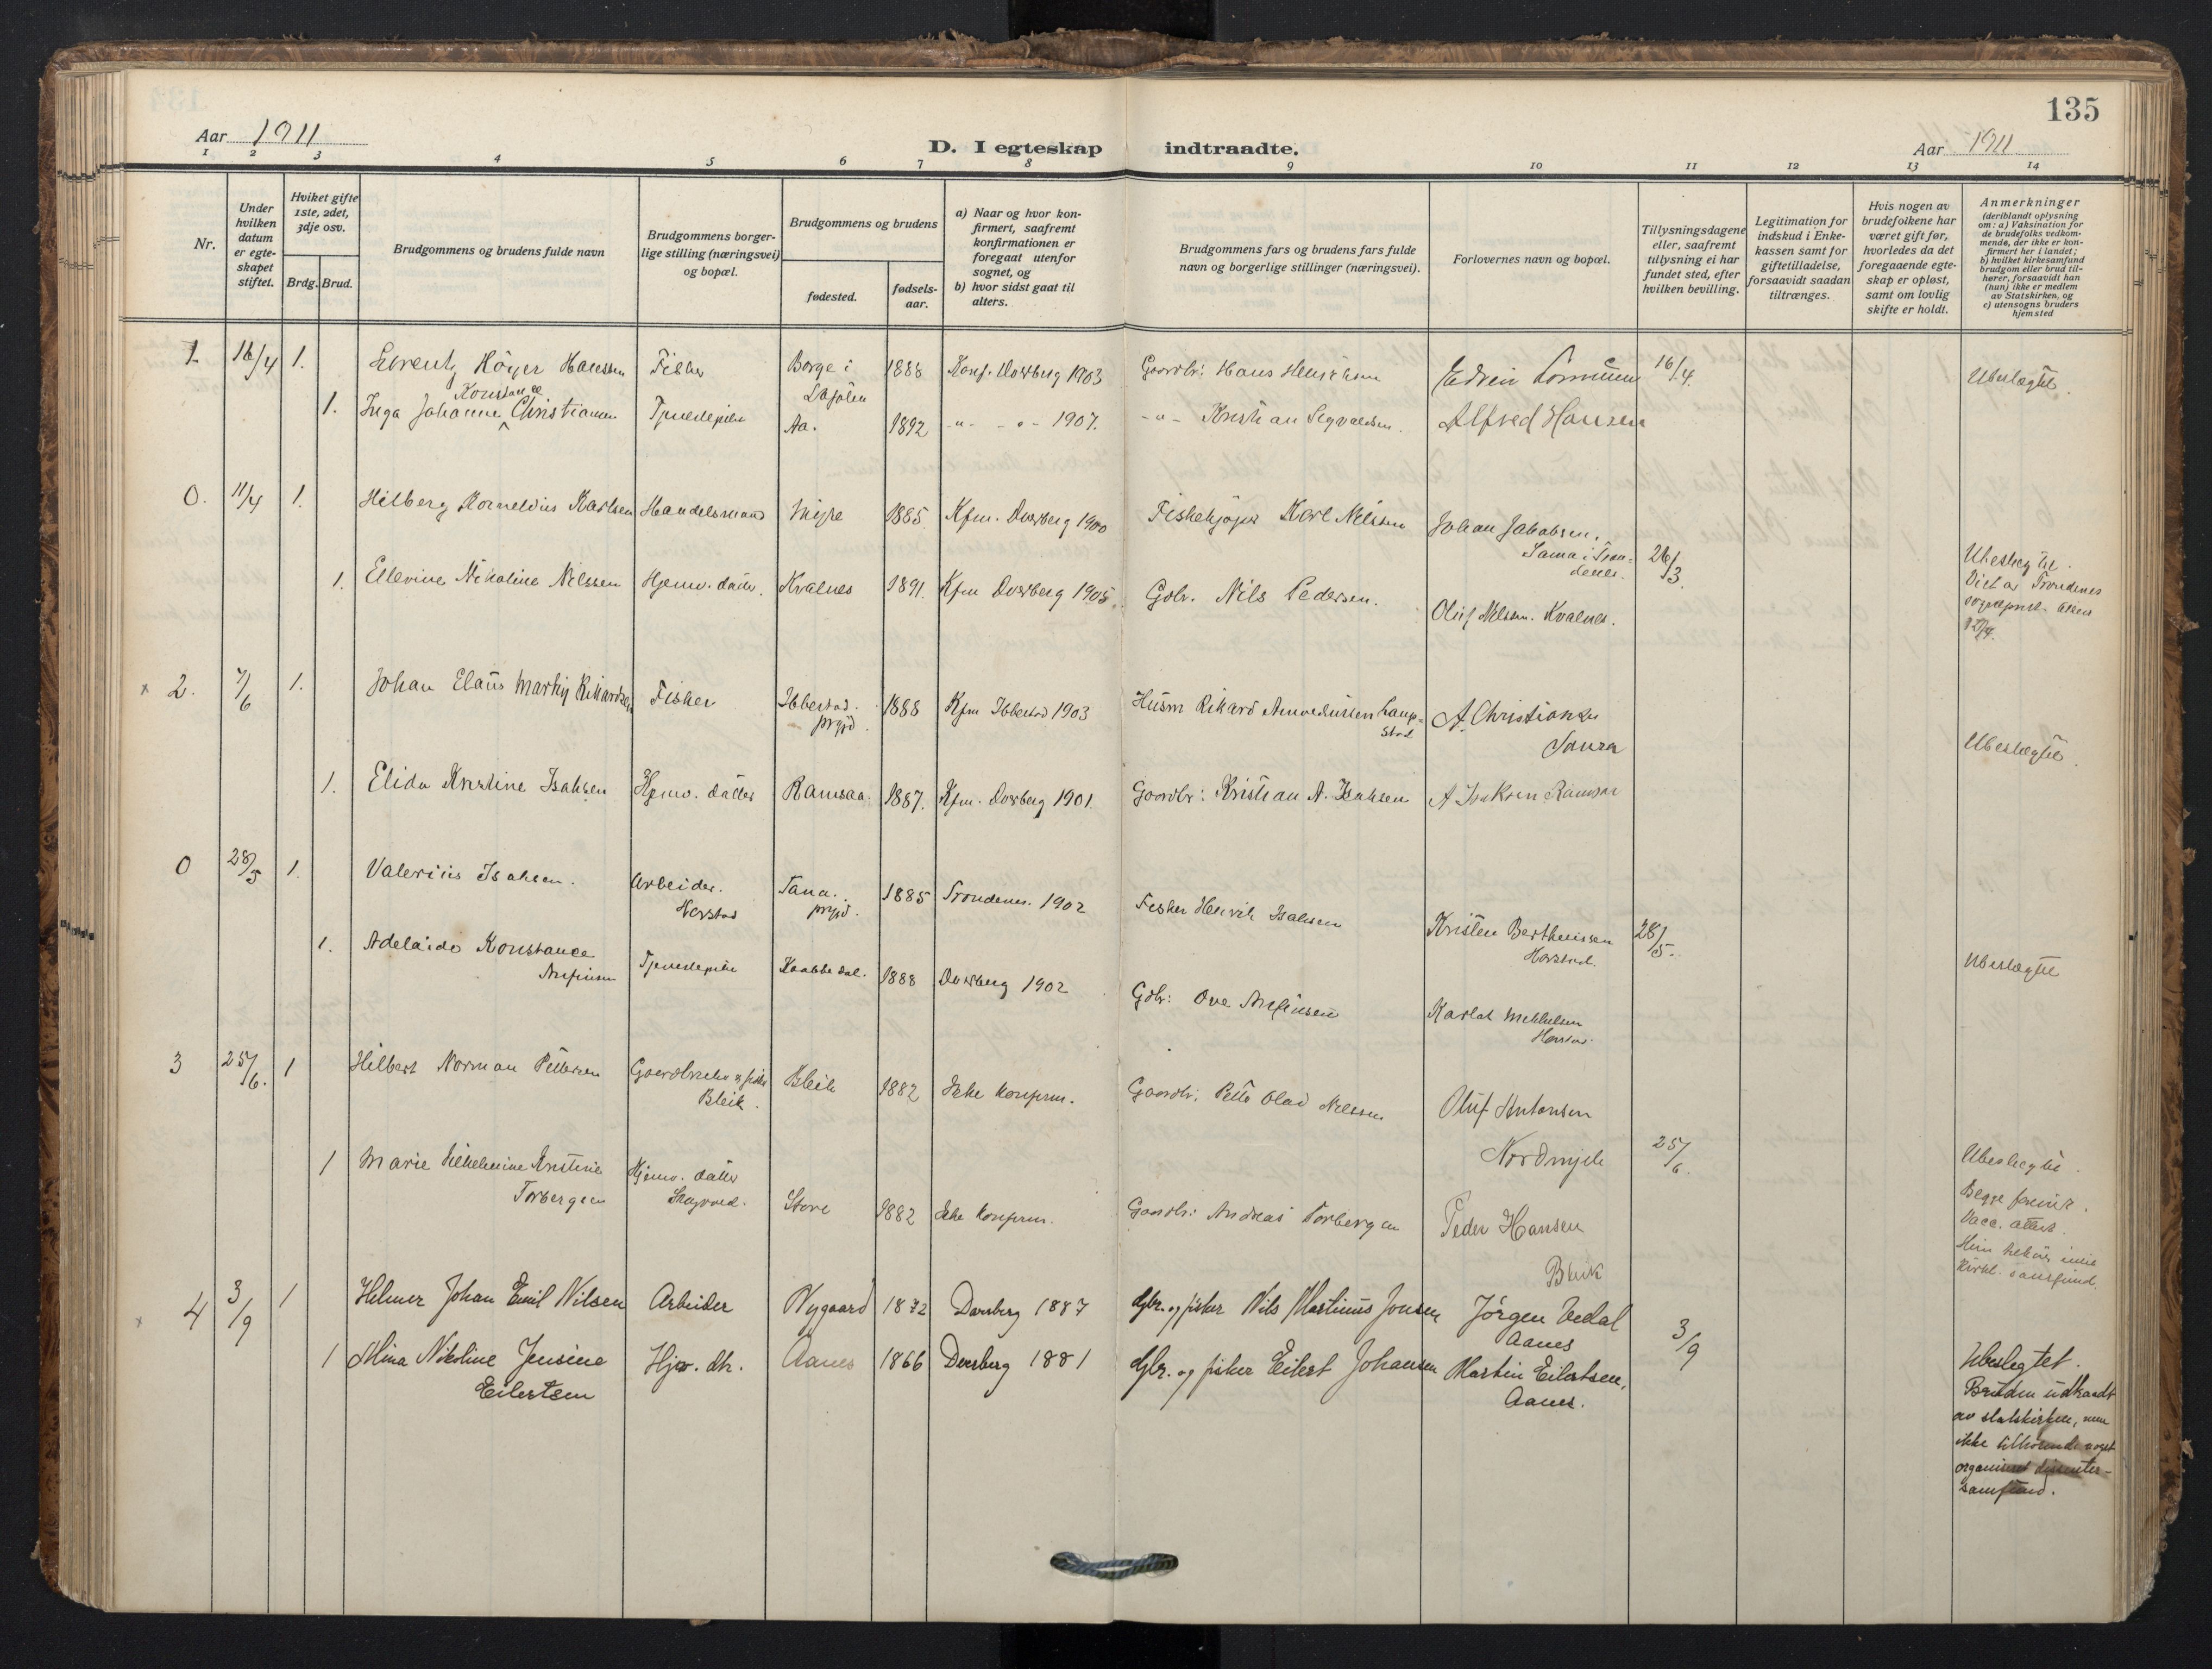 135
Aar 1911
D. I egteskap indtraadte.
Aar 1911
1 2 3 4 5 6 7 8 9 10 11 12 13 14
Nr.
Under hvilken datum er egteskapet stiftet.
Hviket gifte 1ste, 2det, 3dje osv.
Brdg. Brud.
Brudgommens og brudens fulde navn
Brudgommens borgerlige stilling (næringsvei) og bopæl.
Brudgommens og brudens
fødested.
fødselsaar.
a) Naar og hvor konfirmert, saafremt konfirmationen er foregaat utenfor sognet, og
b) hvor sidst gaat til alters.
Brudgommens fars og brudens fars fulde navn og borgerlige stillinger (næringsvei).
Forlovernes navn og bopæl.
Tillysningsdagene eller, saafremt tillysning ei har fundet sted, efter hvilken bevilling.
Legitimation for indskud i Enkekassen samt for giftetilladelse, forsaavidt saadan tiltrænges.
Hvis nogen av brudefolkene har været gift før, hvorledes da det foregaaende egteskap er opløst, samt om lovlig skifte er holdt.
Anmerkninger
(deriblandt oplysning om: a) Vaksination for de brudefolks vedkommende, der ikke er konfirmert her i landet; b) hvilket kirkesamfund brudgom eller brud tilhører, forsaavidt han (hun) ikke er medlem av Statskirken, og c) utensogns bruders hjemsted
1. 16/4 1. Lorentz Höyer Hanssen Fisker Borge i 1888 Konf. Dverberg 1903 Gaardbr: Hans Henriksen 16/4. Ubeslægtet
Konstance
1. Inga Johanne Christiansen Tjenestepike Aa. 1892 -"- -"- 1907. -"- Kristian Sigvaldsen. Alfred Hansen
0. 11/4 1. Hilberg Korneldius Karlsen Handelsmand Myre 1885 Kfm. Dverberg 1900 Fiskekjøper Karl Nilssen Johan Jakobsen,
Sama i Trondenes. 26/3.
1. Ellevine Nikoline Nilssen Hjemv. datter. Kvalnes 1891. Kfm Dverberg 1905. Gbr. Nils Pedersen. Oluf Nilssen. Kvalnes.
Ubeslegtet.
Viet av Trondenes
x 2. 7/6 1. Johan Elaus Martin Rikardsen Fisker Ibbestad prgjd. 1888 Kfm Ibbestad 1903 Husm Rikard
A. Christiansen
Saura
Ubeslegtet.
1. Elida Kristine Isaksen Hjemv. datter Ramsaa. 1887. Kfm. Dverberg 1901. Gaardbr: Kristian A. Isaksen A Isaksen Ramsaa
0 28/5 1. Valerius Isaksen. Arbeider. Harstad Tana. prgjd. 1885 Trondenes. 1902 Fisker Henrik Isaksen Kristen Bertheussen Harstad. 28/5.
1. Adelaide Konstance Anfinsen Tjenestepike Kobbedal. 1888 Dverberg 1902 Gdbr: Ove Anfinsen Harstad. Ubeslægtet
3 25/6. 1 Hilbert Norman Pettersen Gaardbruker & fisker Bleik. Bleik 1882 Ikke konfirm. Gaardbr. Nilssen Oluf Antonsen
Nordmjele 25/6.
1 Marie Vilhelmine Kristine Torbergsen Hjemv. datter Store 1882 Ikke konfirm. Gaardbr: Andreas Torbergsen Peder Hansen
Bleik
Ubeslegtet.
Vacc. attest.
x 4 3/9 1 Helmer Johan Emil Nilsen Arbeider Nygaard 1872 Dverberg 1887 Gbr. og fisker Nils Martinus Jonsen Jørgen Vedal
Aanes 3/9
1 Mina Nikoline Jensine Eilertsen Hjv. dtr. Aanes 1866 Dverberg 1881 Gbr. og fisker Eilert Johansen Martin Eilertsen,
Aanes.
Ubeslegtet.
Bruden udtraadt
av statskirken, men
ikke tilhørende noget
organiseret dissenter-
samfund.